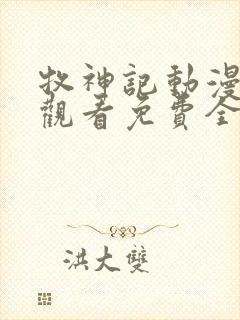 牧神記動漫
觀看免費全
洪大雙